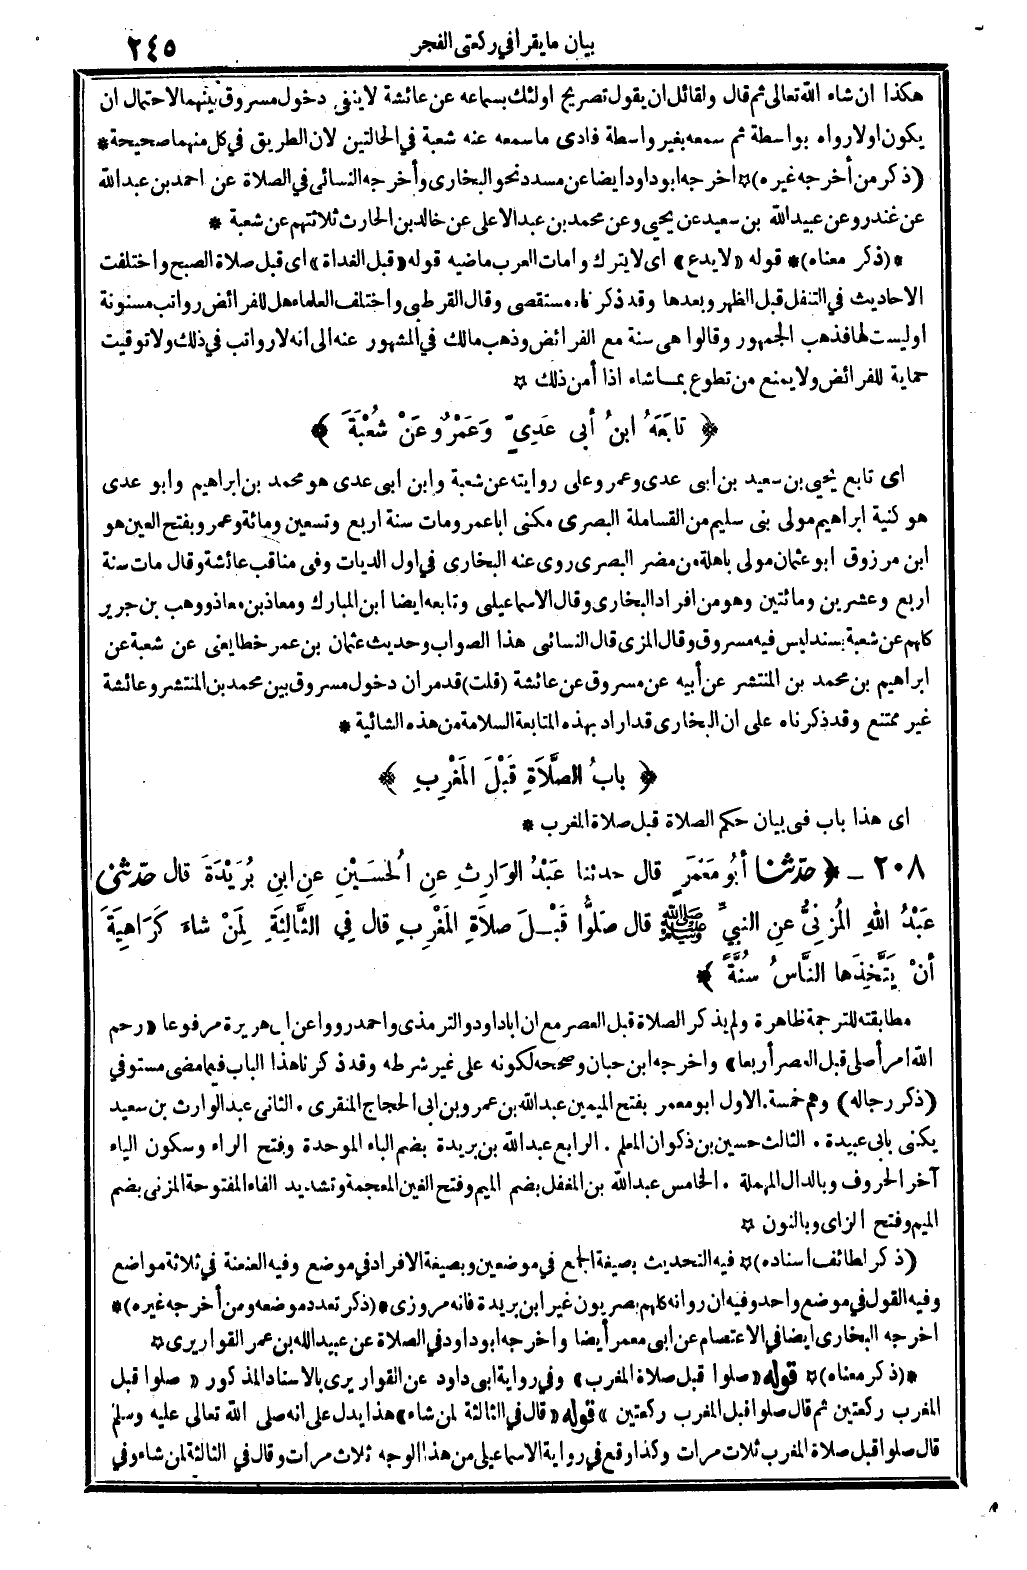 بيان ما يقرأ في ركعتي الفجر ٢٤٥
هكذا ان شاء الله تعالى ثم قال ولقائل ان يقول تصريح اولئك بسماعه عن عائشة لا ينفي دخول مسروق بينهما لاحتمال ان
يكون اولا رواه بواسطة ثم سمعه بغير واسطة فادى ما سمعه عنه شعبة في الحالتين لان الطريق في كل منهما صحيحة *
(ذكر من أخرجه غيره)* اخرجه ابو داود ايضا عن مسدد نحو البخارى وأخرجه النسائى في الصلاة عن احمد بن عبد الله
عن غندر وعن عبيد الله بن سعيد عن يحيى وعن محمد بن عبد الاعلى عن خالد بن الحارث ثلاثتهم عن شعبة *
*(ذكر معناه)* قوله «لا يدع» اى لا يترك وامات العرب ماضيه قوله «قبل الغداة» اى قبل صلاة الصبح واختلفت
الاحاديث في التنفل قبل الظهر وبعدها وقد ذكرناه مستقصى وقال القرطبى واختلف العلماء هل للفرائض رواتب مسنونة
او ليست لها فذهب الجمهور وقالوا هى سنة مع الفرائض وذهب مالك في المشهور عنه الى انه لا رواتب في ذلك ولا توقيت
حماية للفرائض ولا يمنع من تطوع بما شاء اذا أمن ذلك *
﴿ تَابَعَهُ ابنُ أبى عَدِيٍّ وَعَمْرٌو عَنْ شُعْبَةَ ﴾
اى تابع يحيى بن سعيد بن ابى عدى وعمرو على روايته عن شعبة وابن ابى عدى هو محمد بن ابراهيم وابو عدى
هو كنية ابراهيم مولى بنى سليم من القساملة البصرى مكنى ابا عمرو مات سنة اربع وتسعين ومائة وعمرو بفتح العين هو
ابن مرزوق ابو عثمان مولى باهلة من مضر البصرى روى عنه البخارى في اول الديات وفى مناقب عائشة وقال مات سنة
اربع وعشرين ومائتين وهو من افراد البخارى وقال الاسماعيلى وتابعه ايضا ابن المبارك ومعاذ بن معاذ ووهب بن جرير
كلهم عن شعبة بسند ليس فيه مسروق وقال المزى قال النسائى هذا الصواب وحديث عثمان بن عمر خطا يعنى عن شعبة عن
ابراهيم بن محمد بن المنتشر عن أبيه عن مسروق عن عائشة (قلت) قد مر ان دخول مسروق بين محمد بن المنتشر وعائشة
غير ممتنع وقد ذكرناه على ان البخارى قد اراد بهذه المتابعة السلامة من هذه الشائبة *
﴿ بابُ الصَّلاَةِ قَبْلَ المَغْرِبِ ﴾
اى هذا باب فى بيان حكم الصلاة قبل صلاة المغرب *
٢٠٨ ـ ﴿ حدّثنا أبُو مَعْمَرٍ قال حدثنا عَبْدُ الوَارِثِ عنِ الْحُسَيْنِ عنِ ابنِ بُرَيْدَةَ قال حدّثنى
عَبْدُ اللهِ المُزَنِىُّ عنِ النبيِّ ﷺ قال صَلُّوا قَبْـلَ صلاَةِ المَغْرِبِ قال فى الثَّالِثَةِ لِمَنْ شاءَ كَرَاهِيَةَ
أنْ يَتَّخِذَها النَّاسُ سُنَّةً ﴾
مطابقته للترجمة ظاهرة ولم يذكر الصلاة قبل العصر مع ان ابا داود والترمذى واحمد رووا عن ابى هريرة مرفوعا «رحم
الله امرأ صلى قبل العصر أربعا» واخرجه ابن حبان وصححه لكونه على غير شرطه وقد ذكرنا هذا الباب فيما مضى مستوفي
(ذكر رجاله) وهم خمسة . الاول ابو معمر بفتح الميمين عبد الله بن عمرو بن ابى الحجاج المنقرى . الثانى عبد الوارث بن سعيد
يكنى بابى عبيدة . الثالث حسين بن ذكوان المعلم . الرابع عبد الله بن بريدة بضم الباء الموحدة وفتح الراء وسكون الياء
آخر الحروف وبالدال المهملة . الخامس عبد الله بن المغفل بضم الميم وفتح الغين المعجمة وتشديد الفاء المفتوحة المزنى بضم
الميم وفتح الزاى وبالنون *
(ذكر لطائف اسناده)* فيه التحديث بصيغة الجمع في موضعين وبصيغة الافراد في موضع وفيه العنعنة في ثلاثة مواضع
وفيه القول في موضع واحد وفيه ان رواته كلهم بصريون غير ابن بريدة فانه مروزى *(ذكر تعدد موضعه ومن أخرجه غيره)*
اخرجه البخارى ايضا في الاعتصام عن ابى معمر أيضا واخرجه ابو داود في الصلاة عن عبيد الله بن عمر القواريرى *
*(ذكر معناه)* قوله «صلوا قبل صلاة المغرب» وفي رواية ابى داود عن القواريرى بالاسناد المذكور «صلوا قبل
المغرب ركعتين ثم قال صلوا قبل المغرب ركعتين» قوله «قال في الثالثة لمن شاء» هذا يدل على انه صلى الله تعالى عليه وسلم
قال صلوا قبل صلاة المغرب ثلاث مرات وكذا وقع في رواية الاسماعيلى من هذا الوجه ثلاث مرات وقال في الثالثة لمن شاء وفي